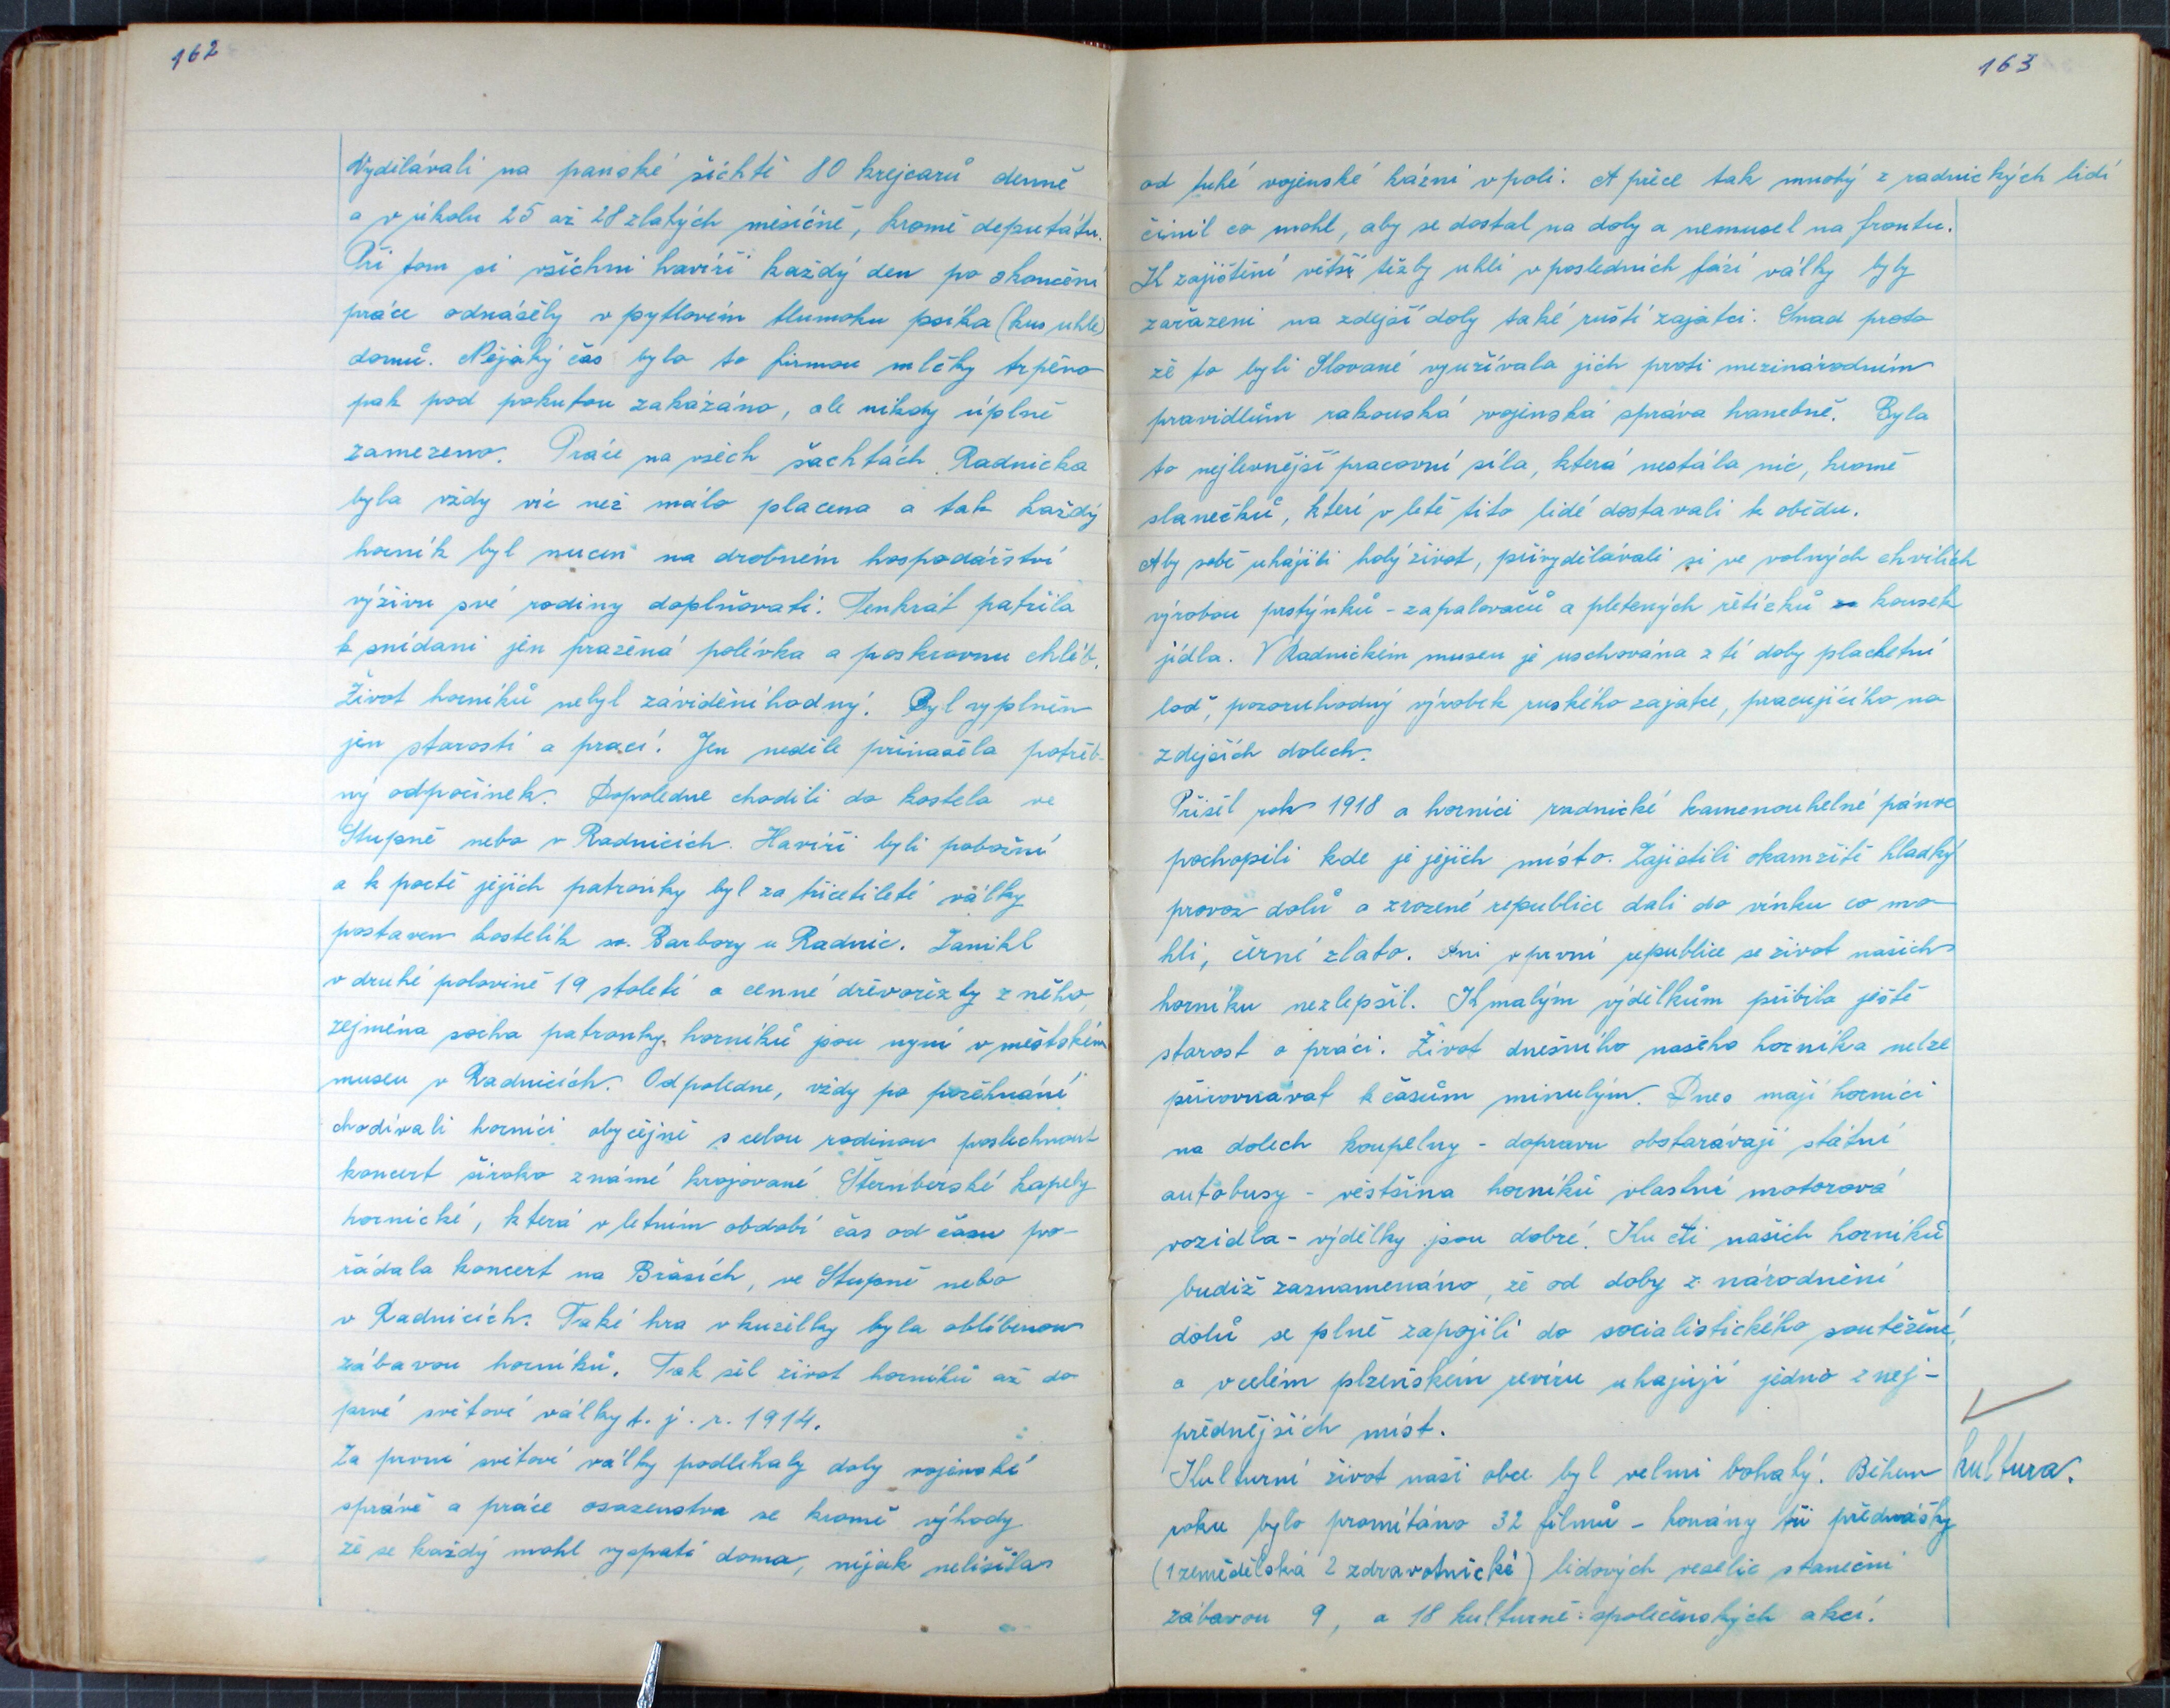 162
Vydělávali na panské šichtě 80 krejcarů denně
a v úkolu 25 až 28 zlatých měsíčně, kromě deputátu.
Při tom si všichni havíři každý den po skončení
práce odnášely v pytlovém tlumoku psíka (kus uhlí)
domů. Nějaký čas bylo to firmou mlčky trpěno
pak pod pokutou zakázáno, ale nikdy úplně
zamezeno. Práce na všech šachtách Radnicka
byla vždy víc než málo placena a tak každý
horník byl nucen na drobném hospodářství
výživu své rodiny doplňovati. Tenkrát patřila
k snídani jen pražená polévka a poskrovnu chléb.
Život horníků nebyl záviděníhodný. Byl vyplněn
jen starostí a prací. Jen neděle přinášela potřeb-
ný odpočinek. Dopoledne chodili do kostela ve
Stupně nebo v Radnicích. Havíři byli pobožní
a k poctě jejich patronky byl za třicetileté války
postaven kostelík sv. Barbory u Radnic. Zanikl
v druhé polovině 19 století a cenné dřevořezby z něho,
zejména socha patronky horníků jsou nyní v městském
museu v Radnicích. Odpoledne, vždy po požehnání
chodívali horníci obyčejně s celou rodinou poslechnout
koncert široko známé krojované Šternberské kapely
hornické, která v letním období čas od času po-
řádala koncert na Břasích, ve Stupně nebo
v Radnicích. Také hra v kuželky byla oblíbenou
zábavou horníků. Tak šel život horníků až do
prvé světové války t. j. r. 1914.
Za první světové války podlehaly doly vojenské
správě a práce osazenstva se kromě výhody
že se každý mohl vyspati doma, nijak nelišila
163
od tuhé vojenské kázni v poli. A přece tak mnohý z radnických lidí
činil co mohl, aby se dostal na doly a nemusel na frontu.
K zajištění větší těžby uhlí v posledních fázi války byly
zařazeni na zdejší doly také ruští zajatci. Snad proto
že to byli Slované využívala jich proti mezinárodním
pravidlům rakouská vojenská správa hanebně. Byla
to nejlevnější pracovní síla, která nestála nic, kromě
slanečků, kteří v létě tito lidé dostavali k obědu.
Aby sobě uhájili holý život, přivydělávali si ve volných chvílích
výrobou prstýnků - zapalovačů a pletených řetízků za kousek
jídla. V Radnickém museu je uschována z té doby plachetní
loď, pozoruhodný výrobek ruského zajatce, pracujícího na
zdejších dolech.
Přišel rok 1918 a horníci radnické kamenouhelné pánve
pochopili kde je jejich místo. Zajistili okamžitě hladký
provoz dolů a zrozené republice dali do vínku co mo
hli, černé zlato. Ani v první republice se život našich
horníku nezlepšil. K malým výdělkům přibyla ještě
starost o práci. Život dnešního našeho horníka nelze
přirovnávat k časům minulým. Dnes mají horníci
na dolech koupelny - dopravu obstarávají státní
autobusy - většina horníků vlastní motorová
vozidla - výdělky jsou dobré. Ku cti našich horníků
budiž zaznamenáno, že od doby znárodnění
dolů se plně zapojili do socialistického soutěžení,
a v celém plzeňském revíru uhajují jedno z nej-
přednějších míst.
Kulturní život naší obce byl velmi bohatý. Během
kultura.
roku bylo promítáno 32 filmů - konány tři přednášky
(1 zemědělská 2 zdravotnické) lidových veselic s taneční
zábavou 9, a 18 kulturně-společenských akcí.